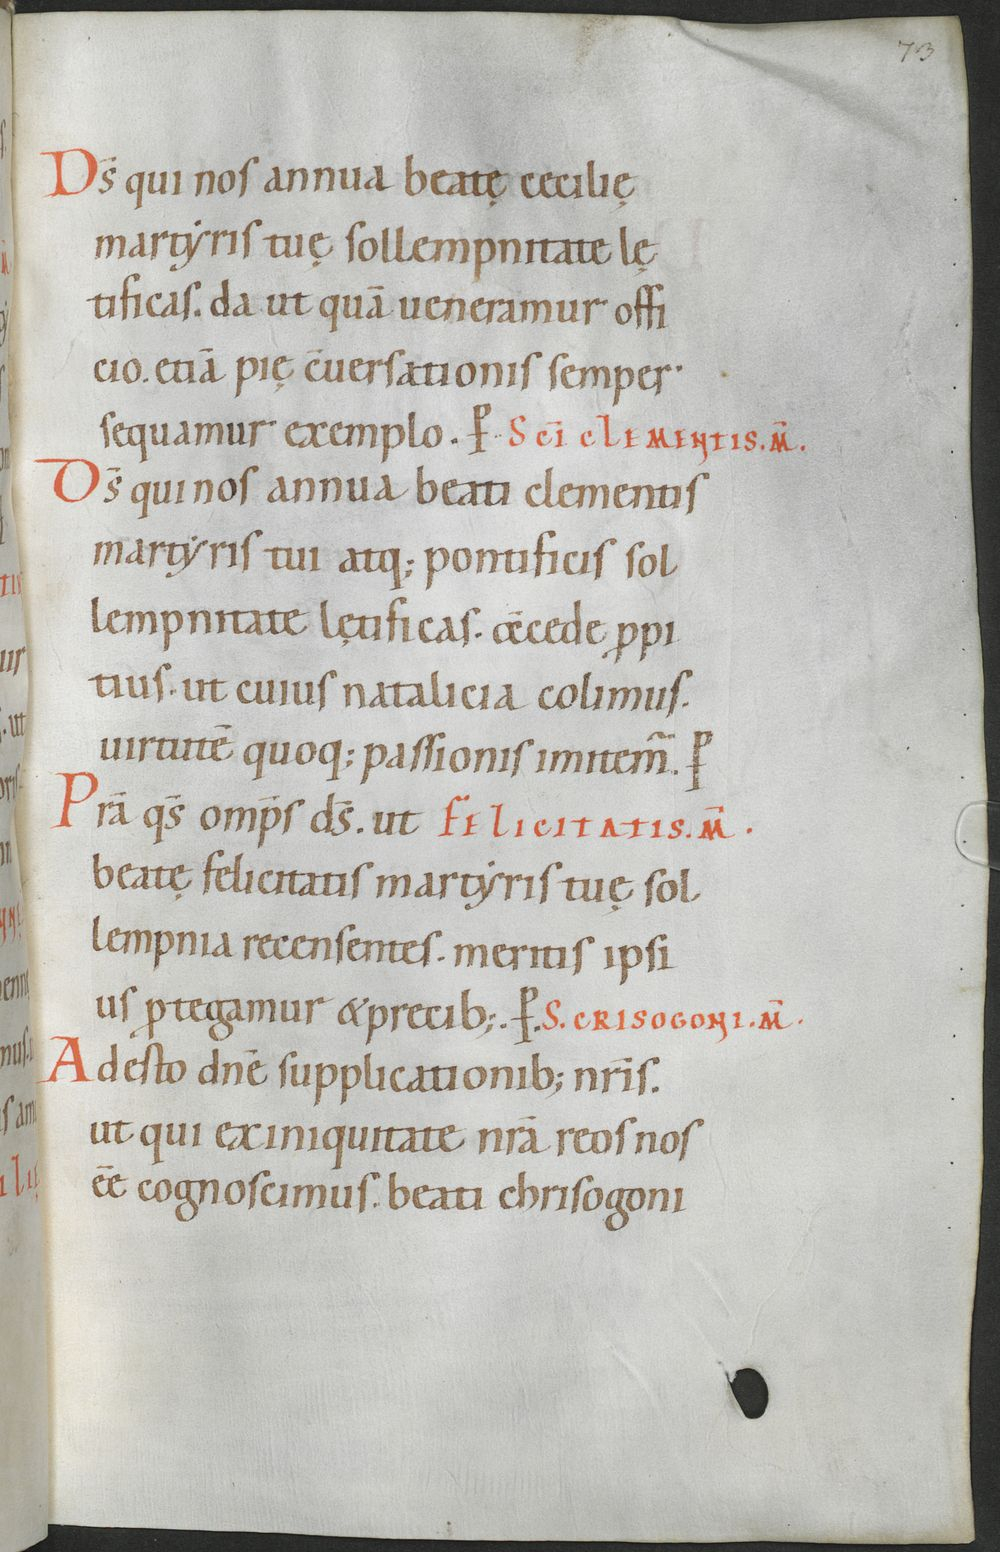 73
Ds̄ qui nos annua beatę cecilię
martẏris tuę sollempnitate lę
tificas. da ut quā ueneramur offi
cio. etiā pię c̄uersationis semper
sequamur exemplo. P̱ Scī CLEMENTIS. M̄.
Ds̄ qui nos annua beati clementis
martẏris tui atq; pontificis sol
lempnitate lętificas. c̄cede ꝓpi
tius. ut cuius natalicia colimus.
uirtutē quoq; passionis imitem̄. P̱
Prā qs̄ omp̄s ds̄. ut FELICITATIS. M̄.
beatę felicitatis martẏris tuę sol
lempnia recensentes. meritis ipsi
us ꝓtegamur & precib;. P̱. S. CRISOGONI. M̄.
Adesto dnē supplicationib; nrīs.
ut qui ex iniquitate nrā reos nos
ēe cognoscimus. beati chrisogoni